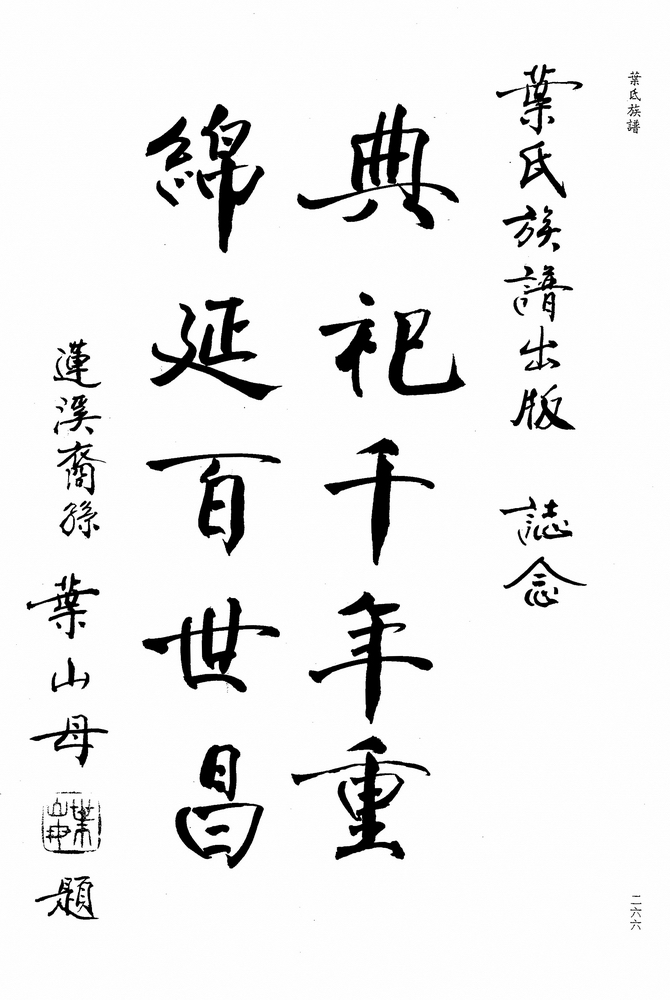 葉氏族譜
葉氏族譜出版 誌念
典祀千年重
綿延百世昌
蓮溪裔孫 葉山母 題
二六六